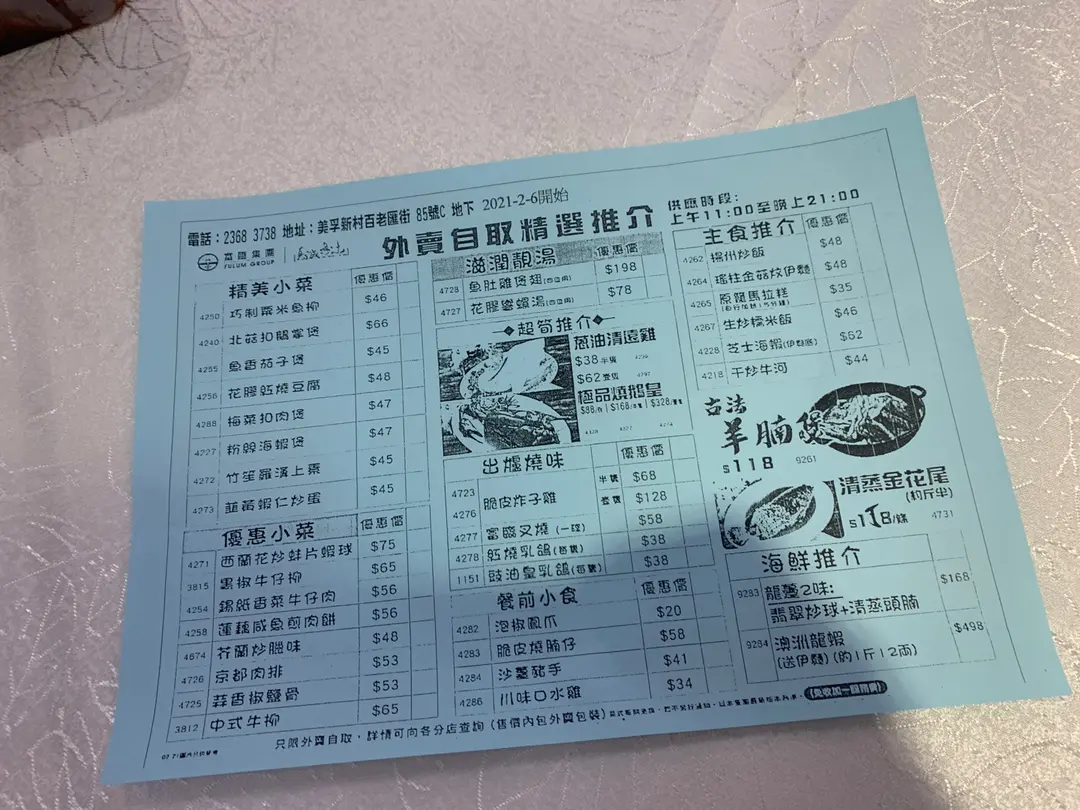 電話：2368 3738 地址：美孚新村百老匯街 85號C 地下 2021-2-6開始
富臨集團
FULUM GROUP
外賣自取精選推介
供應時段：
上午11:00至晚上21:00
精美小菜 優惠價
4250 巧制粟米魚柳 $46
4240 北菇扣鵝掌煲 $66
4255 魚香茄子煲 $45
4256 花膠紅燒豆腐 $48
4288 梅菜扣肉煲 $47
4227 粉絲海蝦煲 $47
4272 竹笙羅漢上素 $45
4273 韮黃蝦仁炒蛋 $45
優惠小菜 優惠價
4271 西蘭花炒蚌片蝦球 $75
3815 黑椒牛仔柳 $65
4254 錫紙香菜牛仔肉 $56
4258 蓮藕咸魚煎肉餅 $56
4674 花蘭炒臘味 $48
4726 京都肉排 $53
4725 蒜香椒鹽骨 $53
3812 中式牛柳 $65
滋潤靚湯 優惠價
4728 魚肚雞煲翅(四位用) $198
4727 花膠螺頭湯(四位用) $78
超筍推介
蔥油清遠雞
$38半隻
$62壹隻
極品燒鵝皇
$88/例 | $168/半隻 | $328/壹隻
出爐燒味 優惠價
4723 脆皮炸子雞 半隻 $68
4276 壹隻 $128
4277 富臨叉燒 (一碟) $58
4278 紅燒乳鴿(每隻) $38
1151 豉油皇乳鴿(每隻) $38
餐前小食 優惠價
4282 泡椒鳳爪 $20
4283 脆皮燒腩仔 $58
4284 沙薑豬手 $41
4286 川味口水雞 $34
主食推介 優惠價
4262 揚州炒飯 $48
4264 瑤柱金菇炆伊麵 $48
4265 原籠馬拉糕 $35
4267 生炒糯米飯 $46
4228 芝士海蝦(伊麵底) $62
4218 干炒牛河 $44
古法
羊腩煲
$118 9261
清蒸金花尾
(約斤半)
$118/條 4731
海鮮推介
9283 龍躉2味: $168
翡翠炒球+清蒸頭腩
9284 澳洲龍蝦 $498
(送伊麵) (約1斤12両)
只限外賣自取，詳情可向各分店查詢 (售價內包外賣包裝)
(免收加一服務費)